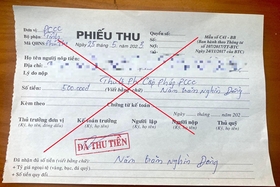 Đơn vị: PCCC
PHIẾU THU
Quyển số:
Mẫu số C40 - BB
(Ban hành theo Thông tư
số 107/2017/TT-BTC
ngày 24/11/2017 của BTC)
Mã QHNS:
Ngày 25 tháng 5 năm 202
Số:
Họ và tên người nộp tiền:
Địa chỉ:
Lý do nộp: Phí Cấp PCCC
Số tiền: 500.000đ (Viết bằng chữ): Năm trăm nghìn đồng
Kèm theo: Chứng từ kế toán
Ngày tháng năm 202
Thủ trưởng đơn vị Kế toán trưởng Người lập Người nộp Thủ quỹ
(Ký, họ tên, đóng dấu) (Ký, họ tên) (Ký, họ tên) (Ký, họ tên) (Ký, họ tên)
ĐÃ THU TIỀN
Đã nhận đủ số tiền (viết bằng chữ): Năm trăm nghìn đồng
+ Tỷ giá ngoại tệ (vàng, bạc, đá quý):
+ Số tiền quy đổi: